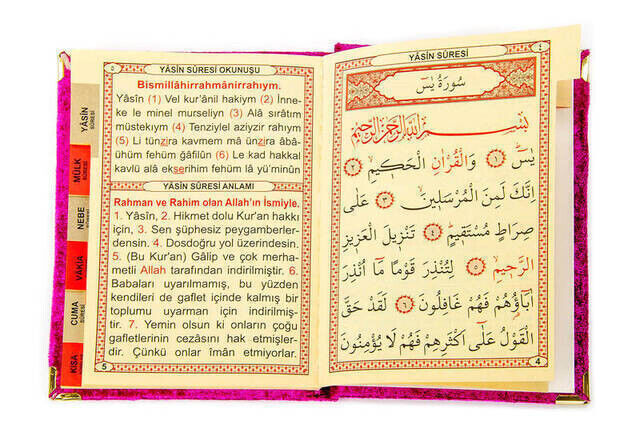 ٤
YÂSÎN SÛRESİ
سُورَةُ يٰسٓ
بِسْــــمِ اللّٰهِ الرَّحْمٰنِ الرَّحِيمِ
يٰسٓ ﴿١﴾ وَالْقُرْاٰنِ الْحَكِيمِ ﴿٢﴾
اِنَّكَ لَمِنَ الْمُرْسَلِينَ ﴿٣﴾ عَلٰى
صِرَاطٍ مُسْتَقِيمٍ ﴿٤﴾ تَنْزِيلَ الْعَزِيزِ
الرَّحِيمِ ﴿٥﴾ لِتُنْذِرَ قَوْمًا مَٓا اُنْذِرَ
اٰبَٓاؤُهُمْ فَهُمْ غَافِلُونَ ﴿٦﴾ لَقَدْ حَقَّ
الْقَوْلُ عَلٰٓى اَكْثَرِهِمْ فَهُمْ لَا يُؤْمِنُونَ
4
٥
YÂSÎN SÛRESİ OKUNUŞU
Bismillâhirrahmânirrahıym.
Yâsîn (1) Vel kur'ânil hakiym (2) İnne-
ke le minel murseliyn (3) Alâ sırâtım
müstekıym (4) Tenziylel aziyzir rahıym
(5) Li tünzira kavmem mâ ünzira âbâ-
ühüm fehüm ğâfilûn (6) Le kad hakkal
kavlü alâ ekserihim fehüm lâ yü'minûn
YÂSÎN SÛRESİ ANLAMI
Rahman ve Rahim olan Allah'ın İsmiyle.
1. Yâsîn, 2. Hikmet dolu Kur'an hakkı
için, 3. Sen şüphesiz peygamberler-
densin. 4. Dosdoğru yol üzerindesin.
5. (Bu Kur'an) Gâlip ve çok merha-
metli Allah tarafından indirilmiştir. 6.
Babaları uyarılmamış, bu yüzden
kendileri de gaflet içinde kalmış bir
toplumu uyarman için indirilmiş-
tir. 7. Yemin olsun ki onların çoğu
gafletlerinin cezâsını hak etmişler-
dir. Çünkü onlar îmân etmiyorlar.
5
YÂSİN
SÛRESİ
MÜLK
SÛRESİ
NEBE
SÛRESİ
VÂKIA
CUMA
SÛRESİ
KISA